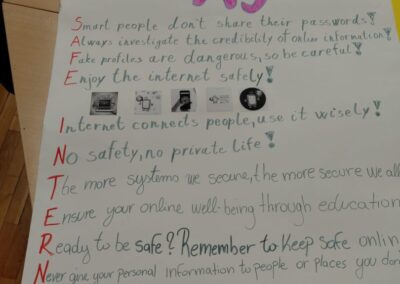 Smart people don't share their passwords!
Always investigate the credibility of online information!
Fake profiles are dangerous, so be careful!
Enjoy the internet safely!
Internet connects people, use it wisely!
No safety, no private life!
The more systems we secure, the more secure we all
Ensure your online well-being through education
Ready to be safe? Remember to keep safe online
Never give your personal information to people or places you don